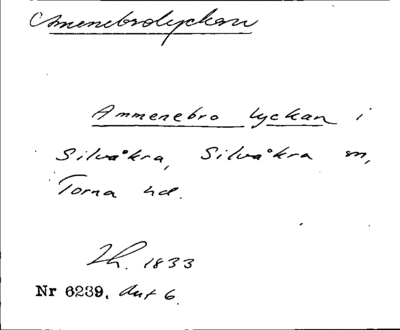 Ammenebrolyckan
Ammenebro lyckan i
Silvåkra, Silvåkra sn,
Torna hd.
Lh. 1833
Nr 6239. Akt 6.